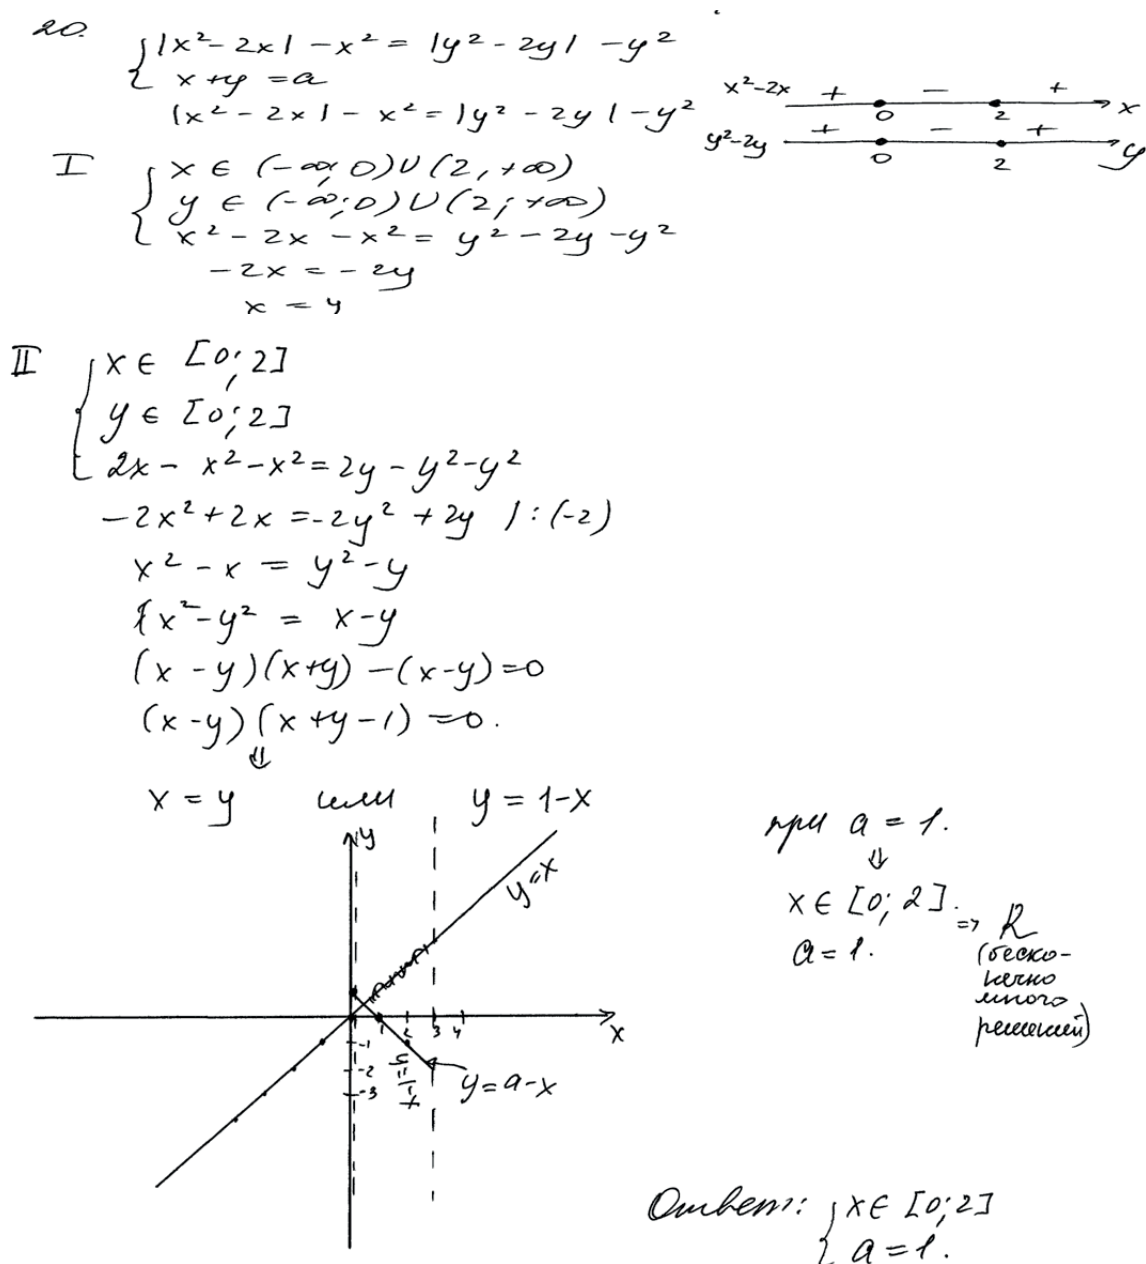 20.
{ |x² - 2x| - x² = |y² - 2y| - y²
x + y = a
|x² - 2x| - x² = |y² - 2y| - y²
x²-2x + - + x
0 2
y²-2y + - + y
0 2
I { x ∈ (-∞; 0) ∪ (2, +∞)
y ∈ (-∞; 0) ∪ (2; +∞)
x² - 2x - x² = y² - 2y - y²
-2x = -2y
x = y
II { x ∈ [0; 2]
y ∈ [0; 2]
2x - x² - x² = 2y - y² - y²
-2x² + 2x = -2y² + 2y | : (-2)
x² - x = y² - y
x² - y² = x - y
(x - y)(x + y) - (x - y) = 0
(x - y)(x + y - 1) = 0.
⇓
x = y или y = 1 - x
y
y = x
1 2 3 4 x
-1
-2
-3
y = a - x
при a = 1.
⇓
x ∈ [0; 2].
a = 1.
⇒ R
(беско-
нечно
много
решений)
Ответ: { x ∈ [0; 2]
a = 1.